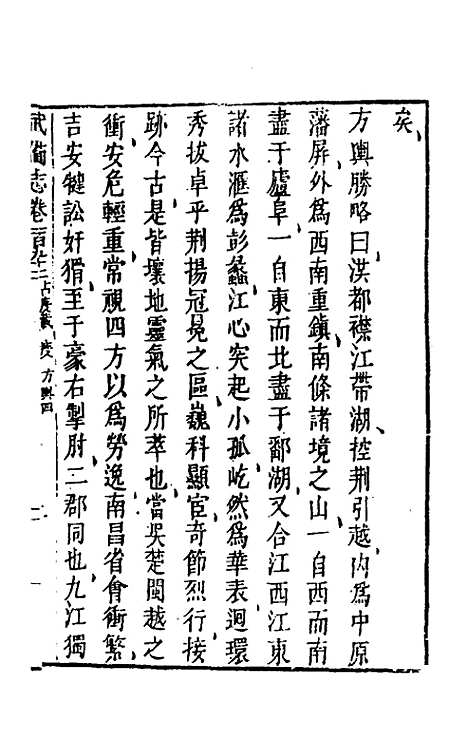 矣
方輿勝略曰洪都襟江帶湖控荆引越内爲中原
藩屏外爲西南重鎮南條諸境之山一自西而南
盡于廬阜一自東而北盡于鄱湖又合江西江東
諸水滙爲彭蠡江心突起小孤屹然爲華表迴環
秀拔卓乎荆揚冠冕之區巍科顯宦奇節烈行接
跡今古是皆壤地靈氣之所萃也當吳楚閩越之
衝安危輕重常視四方以爲勞逸南昌省會衝繁
吉安健訟奸猾至于豪右掣肘三郡同也九江獨
武備志卷一百九十二 占度載 度 方輿四